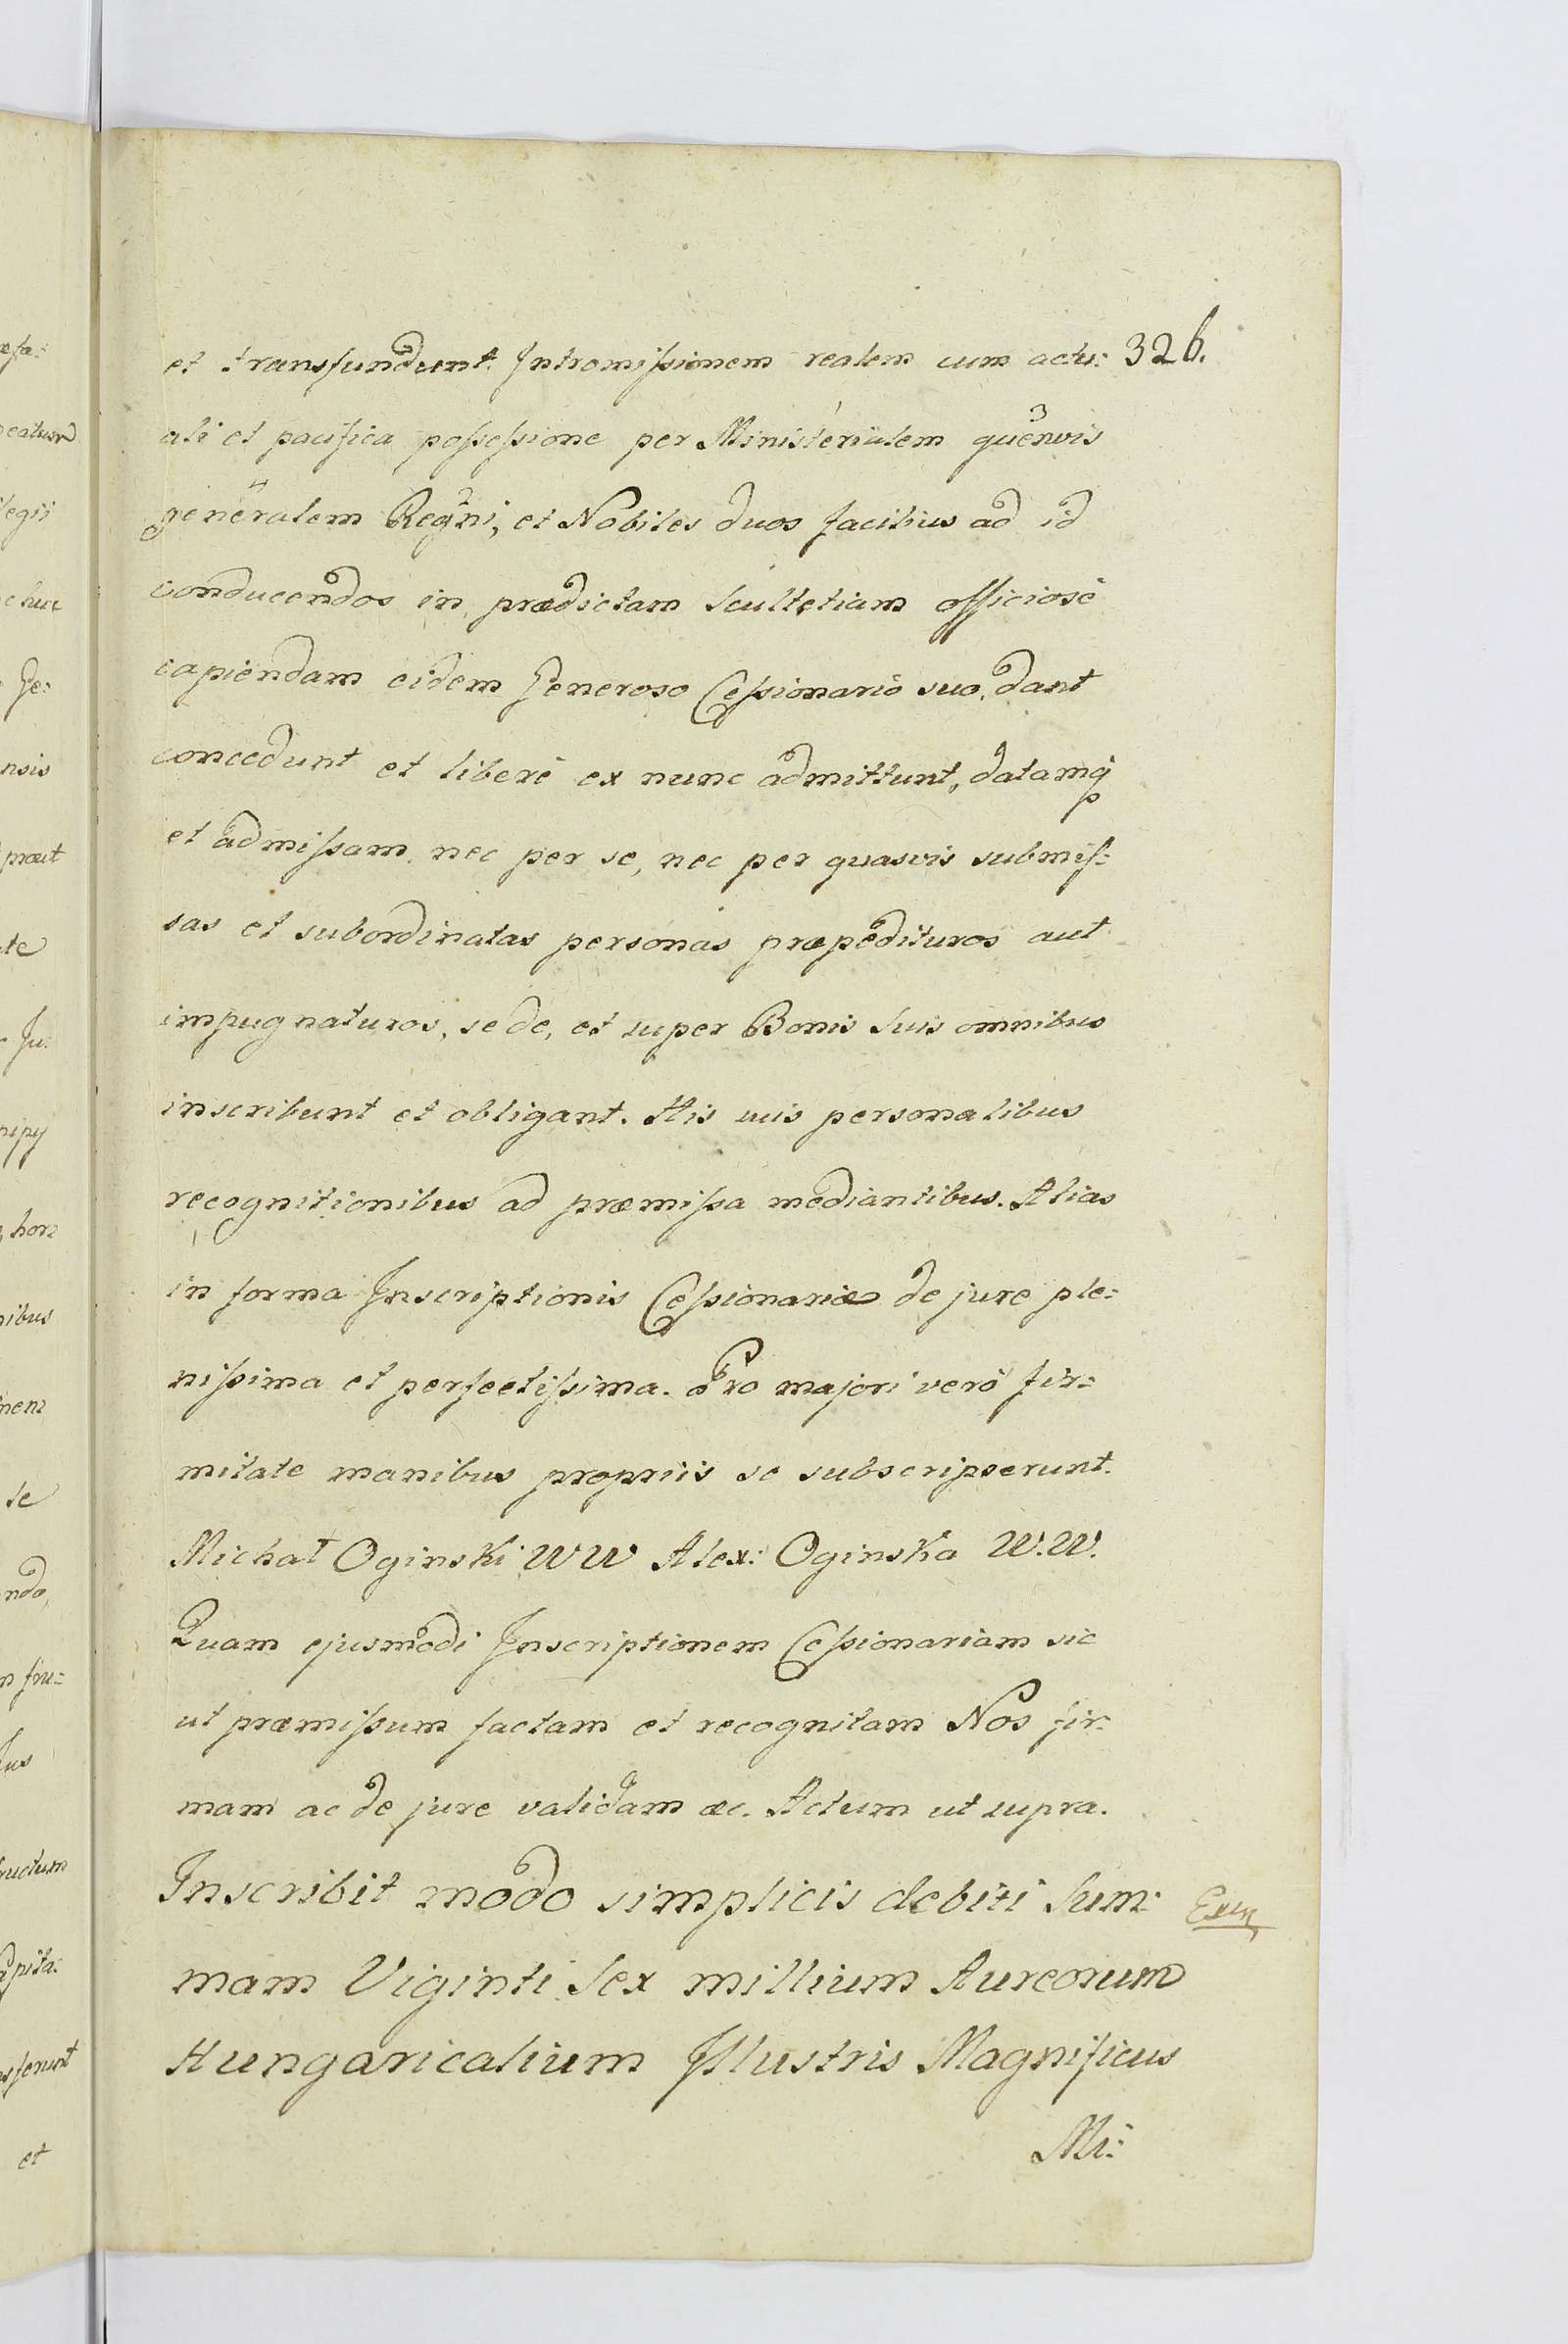 et transfundunt. Intromissionem realem cum actu: 326.
ali et pacifica possessione per Ministerialem quemvis
generalem Regni, et Nobiles duos facilius ad id
conducendos in prædictam Scultetiam officiosè
capiendam eidem Generoso Cessionario suo, dant
concedunt et liberè ex nunc admittunt, datamq
et admissam, nec per se, nec per quasvis submis:
sas et subordinatas personas præpedituros aut
impugnaturos, se de, et super Bonis Suis omnibus
inscribunt et obligant. His suis personalibus
recognitionibus ad præmissa mediantibus. Alias
in forma Inscriptionis Cessionariæ de jure ple:
nissima et perfectissima. Pro majori verò fir:
mitate manibus propriis se subscripserunt.
Michał Oginski WW Alex: Oginska W.W.
Quam ejusmodi Inscriptionem Cessionariam sic
ut præmissum factam et recognitam Nos fir:
mam ac de jure validam &c. Actum ut supra.
Inscribit modo simplicis debiti Sum:
mam Viginti Sex millium Aureorum
Hungaricalium Illustris Magnificus
Mi:
æfa:
legii
Ge:
nsis
præut
Ju:
hor
nibus
se
ndo,
fructum
apita:
et